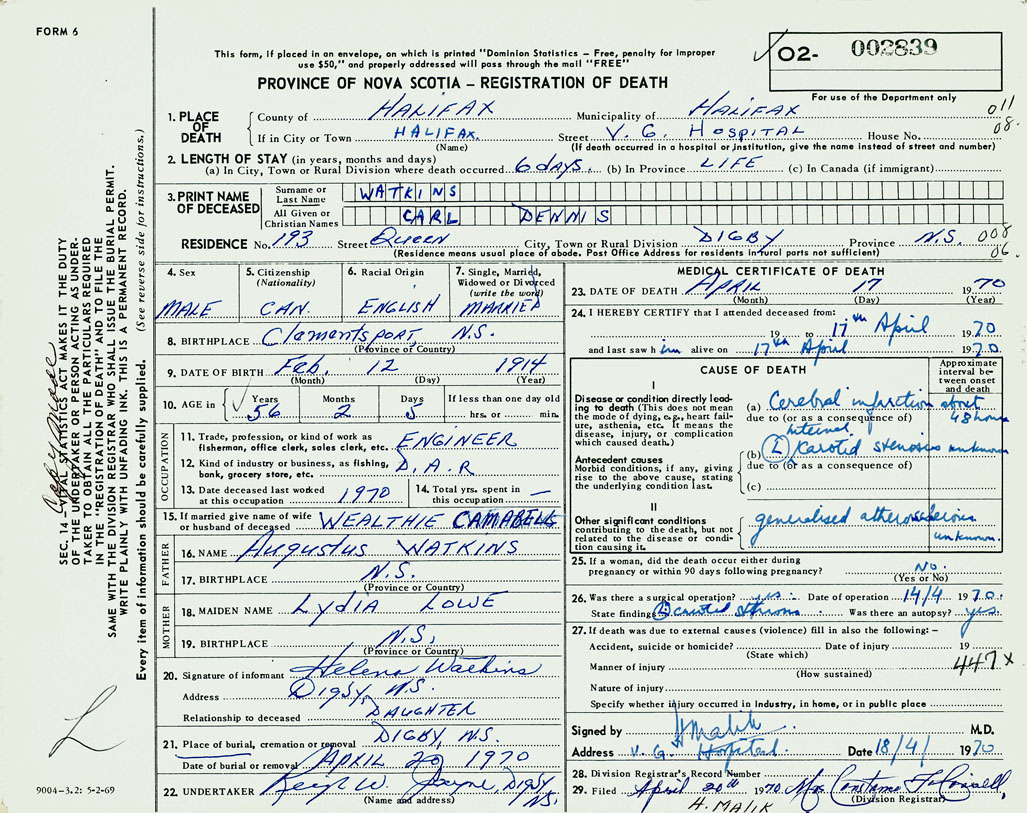 FORM 6
This form, if placed in an envelope, on which is printed "Dominion Statistics – Free, penalty for improper
use $50," and properly addressed will pass through the mail "FREE"
PROVINCE OF NOVA SCOTIA – REGISTRATION OF DEATH
02- 002839
For use of the Department only
1. PLACE OF DEATH
County of HALIFAX Municipality of HALIFAX 011
If in City or Town HALIFAX. Street V. G. HOSPITAL House No. 08.
(Name) (If death occurred in a hospital or institution, give the name instead of street and number)
2. LENGTH OF STAY (in years, months and days)
(a) In City, Town or Rural Division where death occurred 6 days. (b) In Province LIFE (c) In Canada (if immigrant)
3. PRINT NAME OF DECEASED
Surname or Last Name WATKINS
All Given or Christian Names CARL DENNIS
RESIDENCE No. 193 Street QUEEN City, Town or Rural Division DIGBY Province N.S. 008
(Residence means usual place of abode. Post Office Address for residents in rural parts not sufficient) 06.
4. Sex
MALE
5. Citizenship
(Nationality)
CAN.
6. Racial Origin
ENGLISH
7. Single, Married,
Widowed or Divorced
(write the word)
MARRIED
8. BIRTHPLACE Clementsport, N.S.
(Province or Country)
9. DATE OF BIRTH Feb. 12 1914
(Month) (Day) (Year)
10. AGE in
Years Months Days If less than one day old
56 2 5 hrs. or min.
OCCUPATION
11. Trade, profession, or kind of work as
fisherman, office clerk, sales clerk, etc. ENGINEER
12. Kind of industry or business, as fishing,
bank, grocery store, etc. D.A.R
13. Date deceased last worked
at this occupation 1970
14. Total yrs. spent in
this occupation —
15. If married give name of wife
or husband of deceased WEALTHIE CAMPBELL
FATHER
16. NAME Augustus WATKINS
17. BIRTHPLACE N.S.
(Province or Country)
MOTHER
18. MAIDEN NAME Lydia LOWE
19. BIRTHPLACE N.S.
(Province or Country)
20. Signature of informant Helena Watkins
Address Digby, N.S.
Relationship to deceased DAUGHTER
21. Place of burial, cremation or removal DIGBY, N.S.
Date of burial or removal APRIL 20 1970
22. UNDERTAKER W. Jayne, Digby
(Name and address) NS.
MEDICAL CERTIFICATE OF DEATH
23. DATE OF DEATH APRIL 17 1970
(Month) (Day) (Year)
24. I HEREBY CERTIFY that I attended deceased from:
19 to 17th April 1970
and last saw h im alive on 17th April 1970.
CAUSE OF DEATH
Approximate
interval be-
tween onset
and death
I
Disease or condition directly lead-
ing to death (This does not mean
the mode of dying, e.g., heart fail-
ure, asthenia, etc. It means the
disease, injury, or complication
which caused death.)
(a) Cerebral infarction about
due to (or as a consequence of) 48 hours
Antecedent causes
Morbid conditions, if any, giving
rise to the above cause, stating
the underlying condition last.
internal
(b) (L) Carotid stenosis unknown
due to (or as a consequence of)
(c)
II
Other significant conditions
contributing to the death, but not
related to the disease or condi-
tion causing it.
generalised
unknown.
25. If a woman, did the death occur either during
pregnancy or within 90 days following pregnancy? No.
(Yes or No)
26. Was there a surgical operation? yes. Date of operation 14/4 1970.
State finding (L) carotid stenosis Was there an autopsy? yes.
27. If death was due to external causes (violence) fill in also the following: –
Accident, suicide or homicide? Date of injury 19
(State which)
447x
Manner of injury
(How sustained)
Nature of injury
Specify whether injury occurred in industry, in home, or in public place
Signed by H Malik M.D.
Address V. G. Hospital. Date 18/4/ 1970
28. Division Registrar's Record Number
29. Filed April 20th 1970 Mrs
(Division Registrar)
H. MALIK
SEC. 14 – VITAL STATISTICS ACT MAKES IT THE DUTY
OF THE UNDERTAKER OR PERSON ACTING AS UNDER-
TAKER TO OBTAIN ALL THE PARTICULARS REQUIRED
IN THE "REGISTRATION OF DEATH" AND TO FILE THE
SAME WITH THE DIVISION REGISTRAR WHO SHALL ISSUE THE BURIAL PERMIT.
WRITE PLAINLY WITH UNFADING INK. THIS IS A PERMANENT RECORD.
Every item of information should be carefully supplied. (See reverse side for instructions.)
Copy Made
9004–3.2: 5-2-69